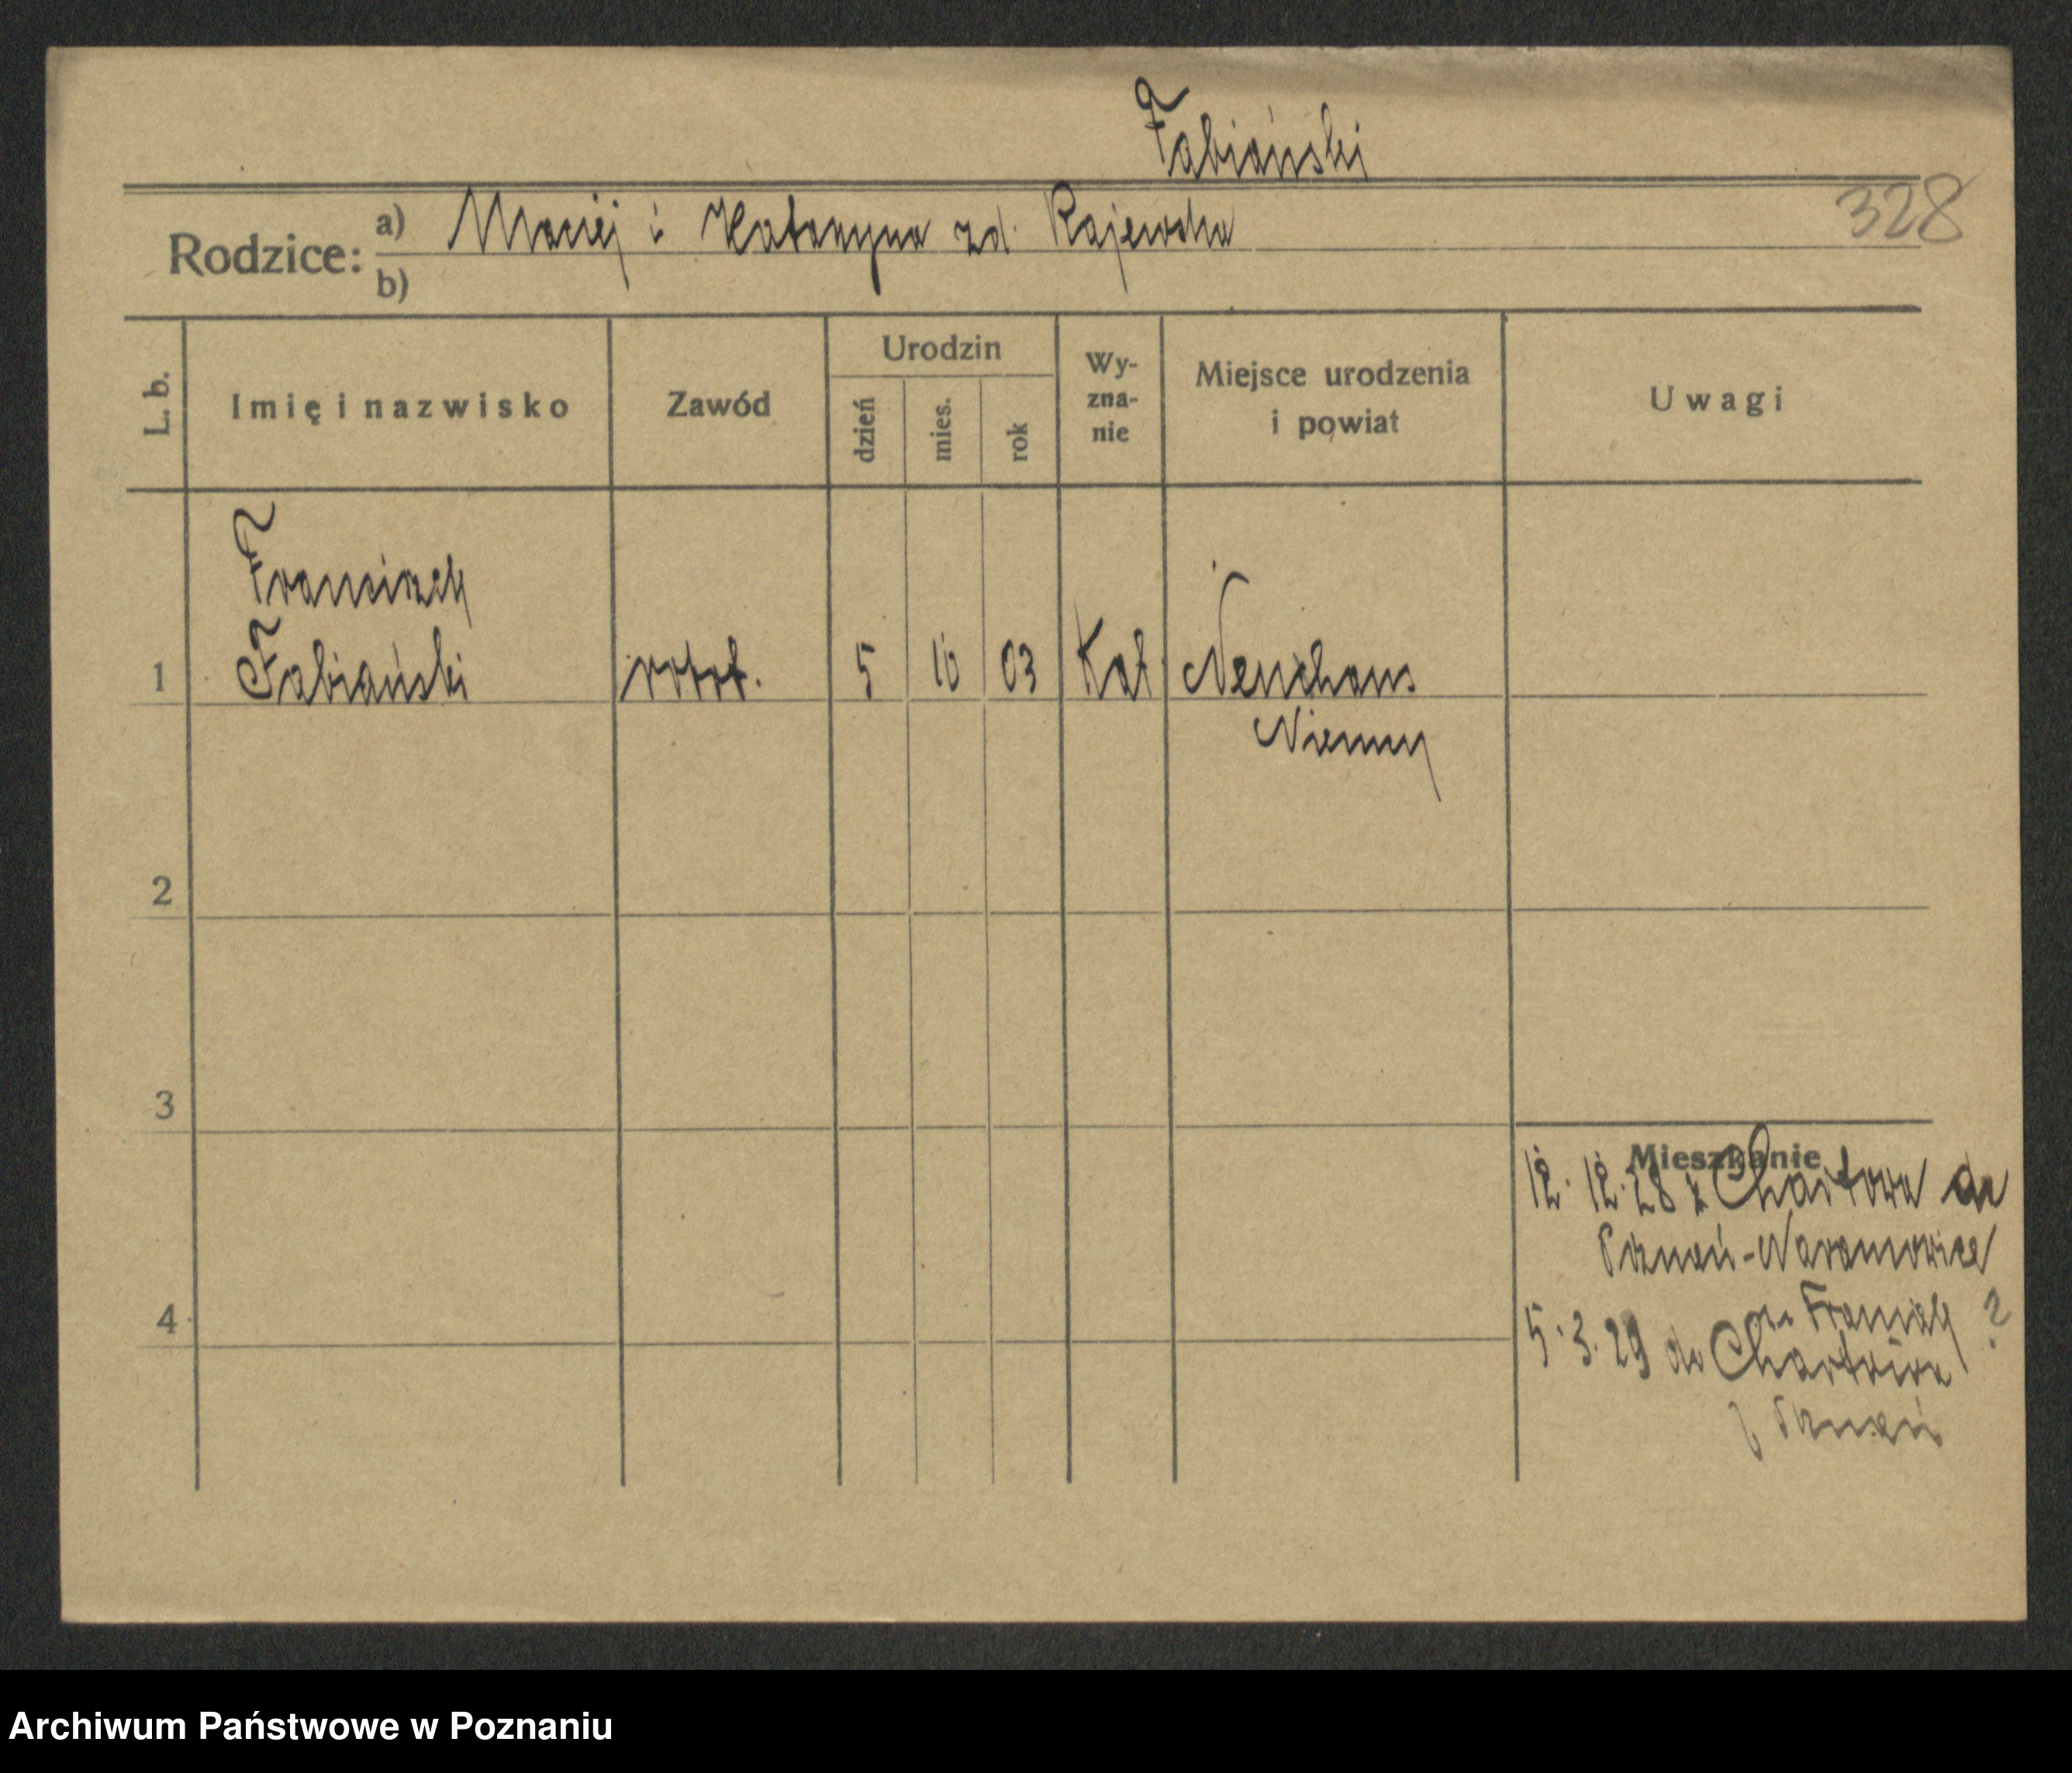 Fabiański
328
Rodzice: a) Maciej i Katarzyna zd. Rajewska
b)
L. b. Imię i nazwisko Zawód Urodzin dzień mies. rok Wy-zna-nie Miejsce urodzenia i powiat Uwagi
Franciszek
1 Fabiański robot. 5 10 03 Kat Neuhaus
Niemcy
2
3
Mieszkanie
12. 12. 28 z Chartowa do
Poznań-Naramowice
?
5. 3. 29 do Chartowa
Poznań
4
Archiwum Państwowe w Poznaniu